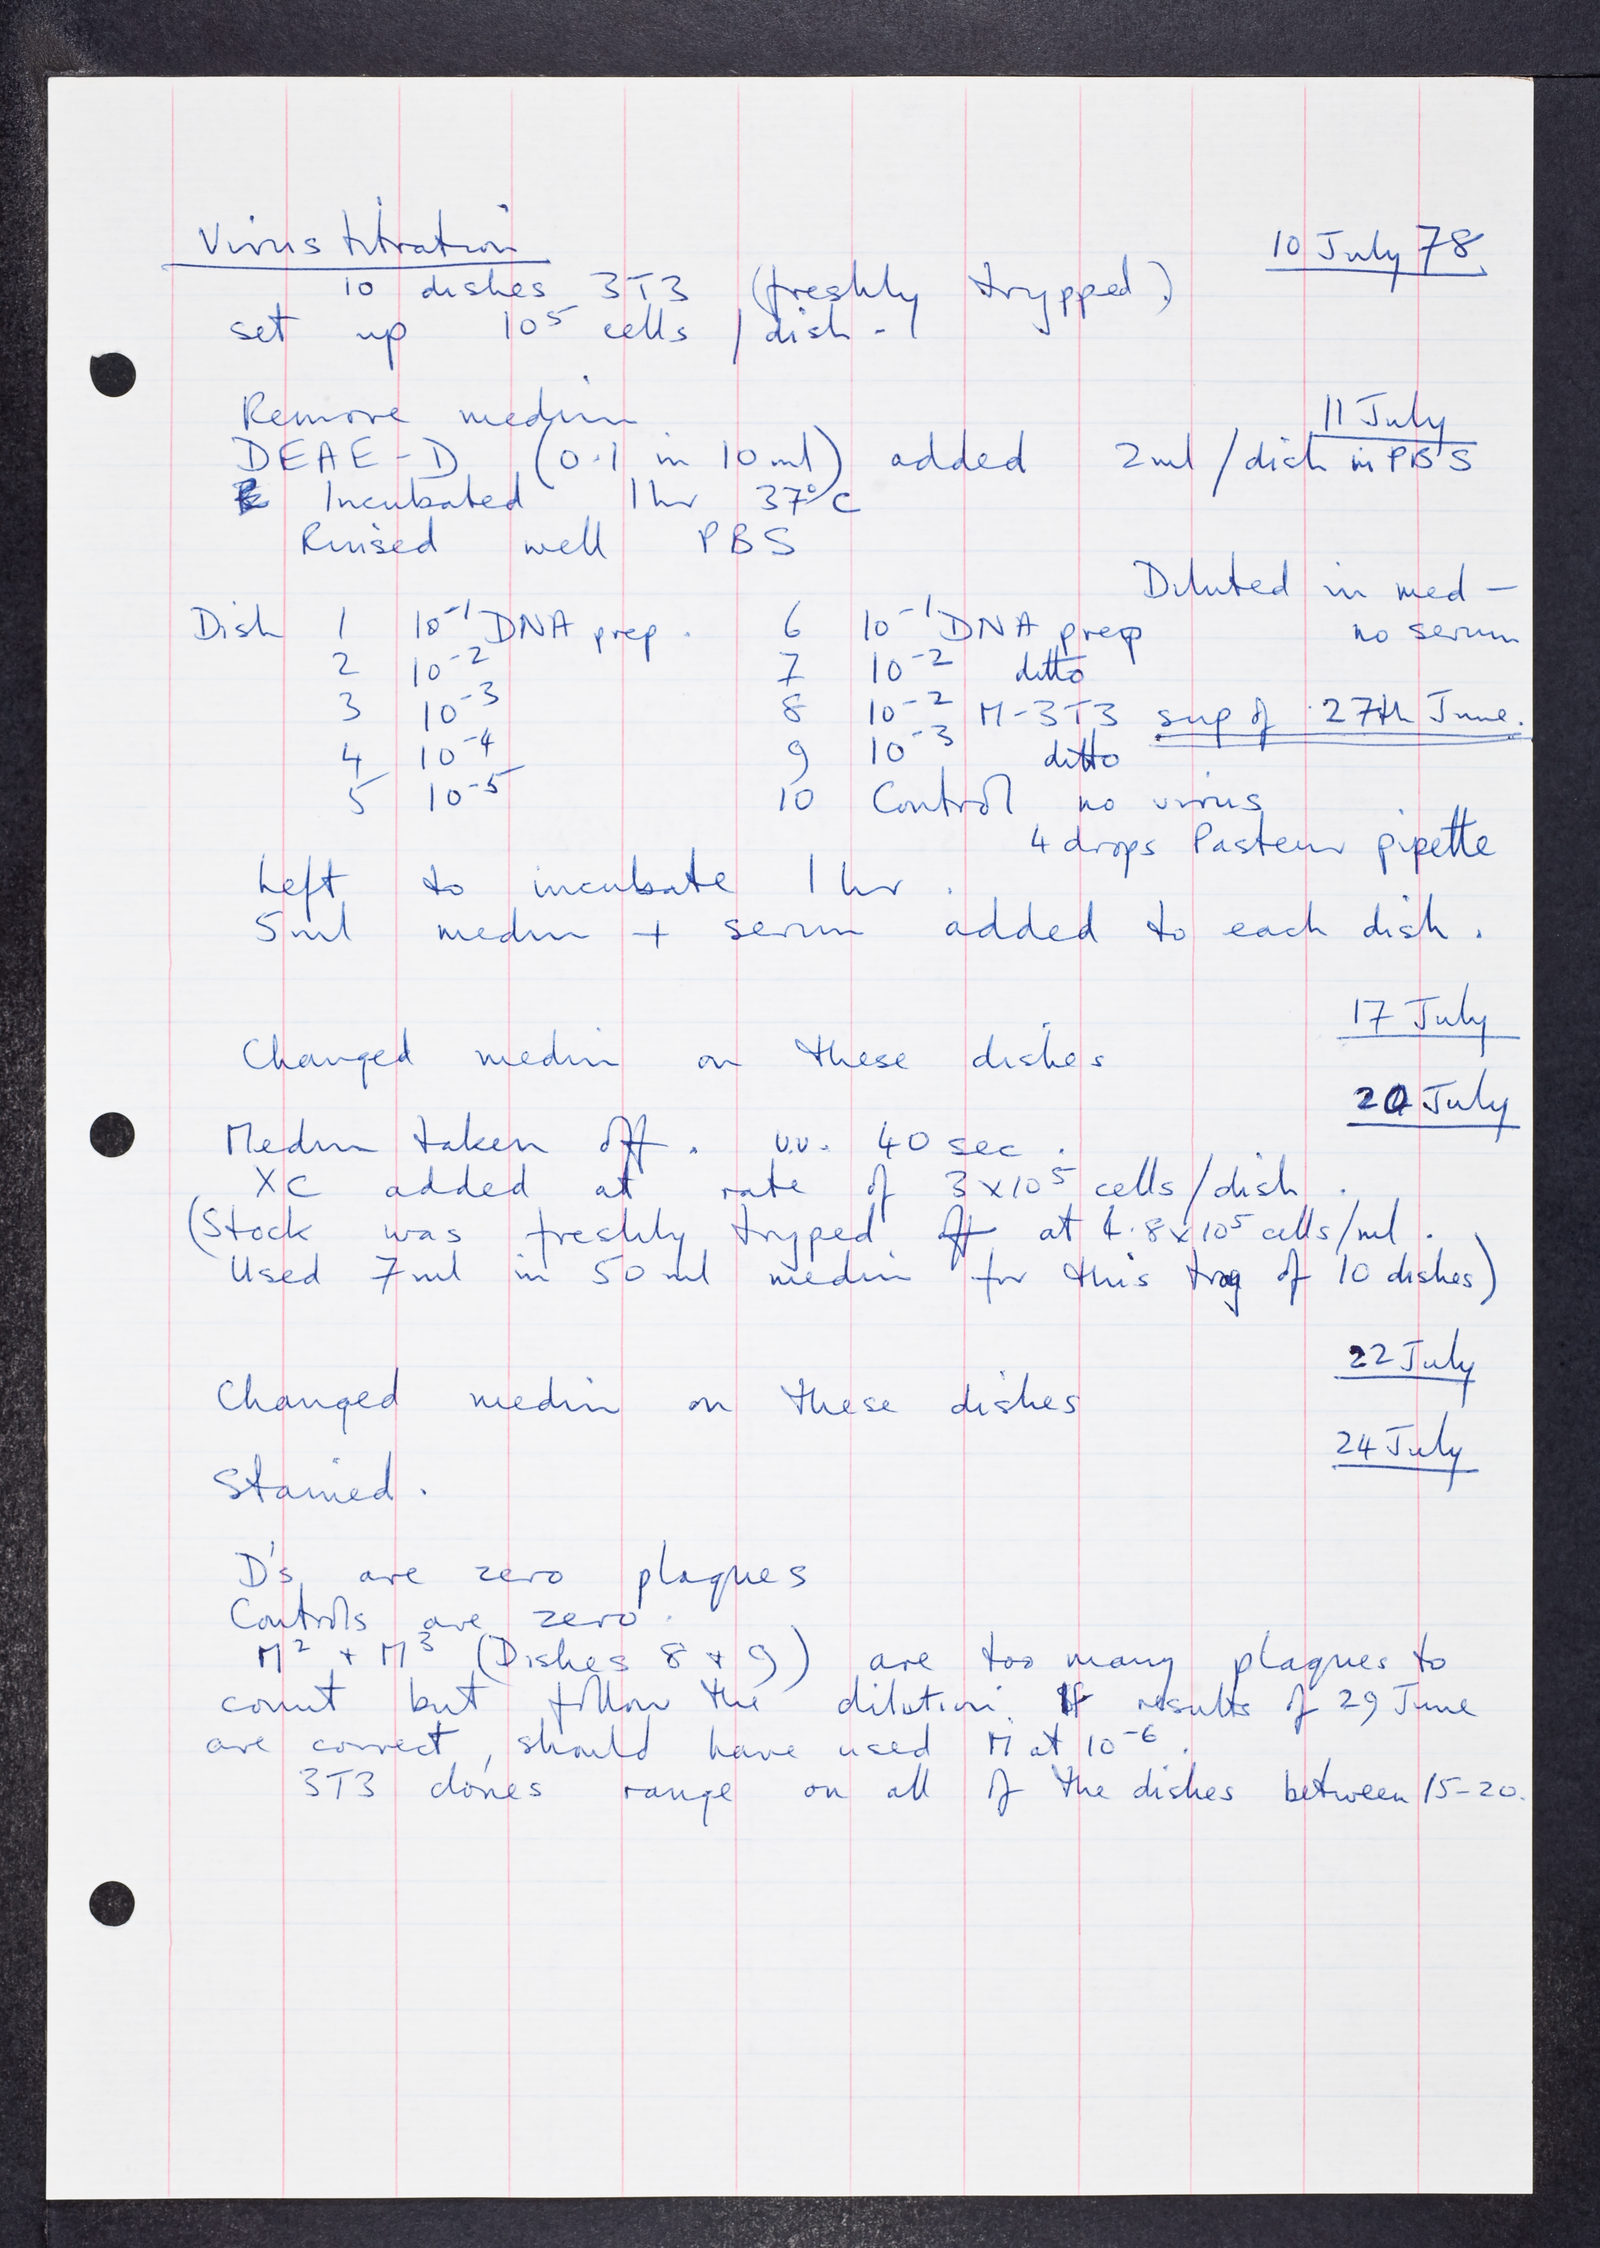 Virus titration
10 July 78
10 dishes 3T3 (freshly trypped.)
set up 10⁵ cells / dish -
11 July
Remove medium
DEAE-D (0.1 in 10 ml) added 2ml / dish in PBS
Incubated 1 hr 37°C
Rinsed well PBS
Diluted in med -
no serum
Dish 1 10⁻¹ DNA prep. 6 10⁻¹ DNA prep
2 10⁻² 7 10⁻² ditto
3 10⁻³ 8 10⁻² M-3T3 sup of 27th June.
4 10⁻⁴ 9 10⁻³ ditto
5 10⁻⁵ 10 Control no virus
4 drops Pasteur pipette
Left to incubate 1 hr.
5ml medium + serum added to each dish.
17 July
Changed medium on these dishes
20 July
Medium taken off. u.v. 40 sec.
XC added at rate of 3 x 10⁵ cells/dish.
(Stock was freshly tryped at 4.8 x 10⁵ cells/ml.
Used 7ml in 50 ml medium for this tray of 10 dishes)
22 July
Changed medium on these dishes
24 July
Stained.
D's are zero plaques
Controls are zero.
M² + M³ (Dishes 8 + 9) are too many plaques to
count but follow the dilution. If results of 29 June
are correct, should have used M at 10⁻⁶.
3T3 clones range on all of the dishes between 15-20.